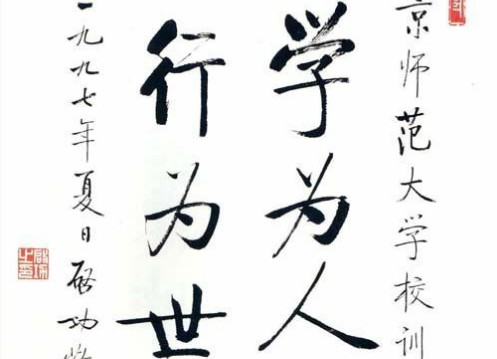 京师范大学校训
学为人
行为世
一九九七年夏日启功